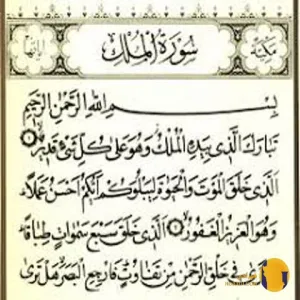 مكية سورة الملك
بِسْمِ اللَّهِ الرَّحْمَٰنِ الرَّحِيمِ
تَبَارَكَ الَّذِي بِيَدِهِ الْمُلْكُ وَهُوَ عَلَىٰ كُلِّ شَيْءٍ قَدِيرٌ ١
الَّذِي خَلَقَ الْمَوْتَ وَالْحَيَوٰةَ لِيَبْلُوَكُمْ أَيُّكُمْ أَحْسَنُ عَمَلًا
وَهُوَ الْعَزِيزُ الْغَفُورُ الَّذِي خَلَقَ سَبْعَ سَمٰوَاتٍ طِبَاقًا
تَرَىٰ فِي خَلْقِ الرَّحْمَٰنِ مِنْ تَفَاوُتٍ فَارْجِعِ الْبَصَرَ هَلْ تَرَىٰ